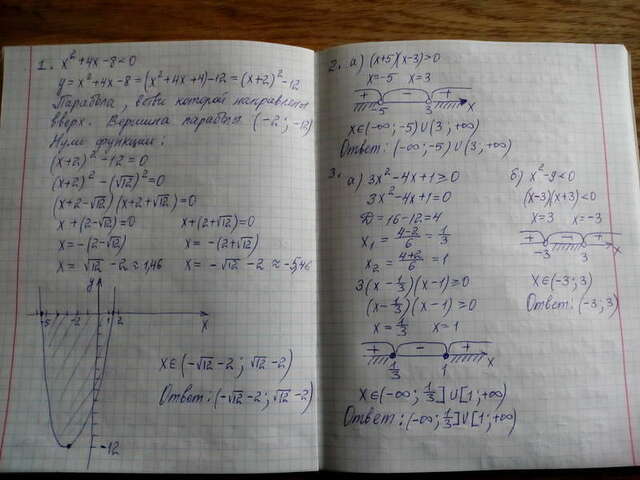 1. x²+4x-8<0
y=x²+4x-8=(x²+4x+4)-12=(x+2)²-12
Парабола, ветви которой направлены
вверх. Вершина параболы (-2; -12)
Нули функции:
(x+2)²-12=0
(x+2)²-(√12)²=0
(x+2-√12)(x+2+√12)=0
x+(2-√12)=0 x+(2+√12)=0
x=-(2-√12) x=-(2+√12)
x=√12-2≈1,46 x=-√12-2≈-5,46
y
-5 -2 1 2 x
-12
x∈(-√12-2; √12-2)
Ответ: (-√12-2; √12-2)
2. а) (x+5)(x-3)>0
x=-5 x=3
+ - +
-5 3 x
x∈(-∞;-5)∪(3;+∞)
Ответ: (-∞;-5)∪(3;+∞)
3. а) 3x²-4x+1≥0
3x²-4x+1=0
D=16-12=4
x₁=(4-2)/6=1/3
x₂=(4+2)/6=1
3(x-1/3)(x-1)≥0
(x-1/3)(x-1)≥0
x=1/3 x=1
+ - +
1/3 1 x
x∈(-∞;1/3]∪[1;+∞)
Ответ: (-∞;1/3]∪[1;+∞)
б) x²-9<0
(x-3)(x+3)<0
x=3 x=-3
+ - +
-3 3 x
x∈(-3;3)
Ответ: (-3;3)